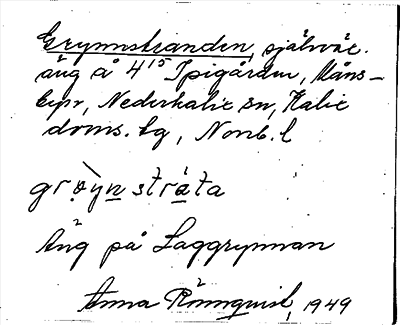 Grynnstranden, självväx.
äng å 4¹⁵ Spigården, Måns-
byn, Nederkalix sn, Kalix
doms. tg, Norrb. l
grøyn stráta
Äng på Laggrynnan
Anna Rönnquist, 1949